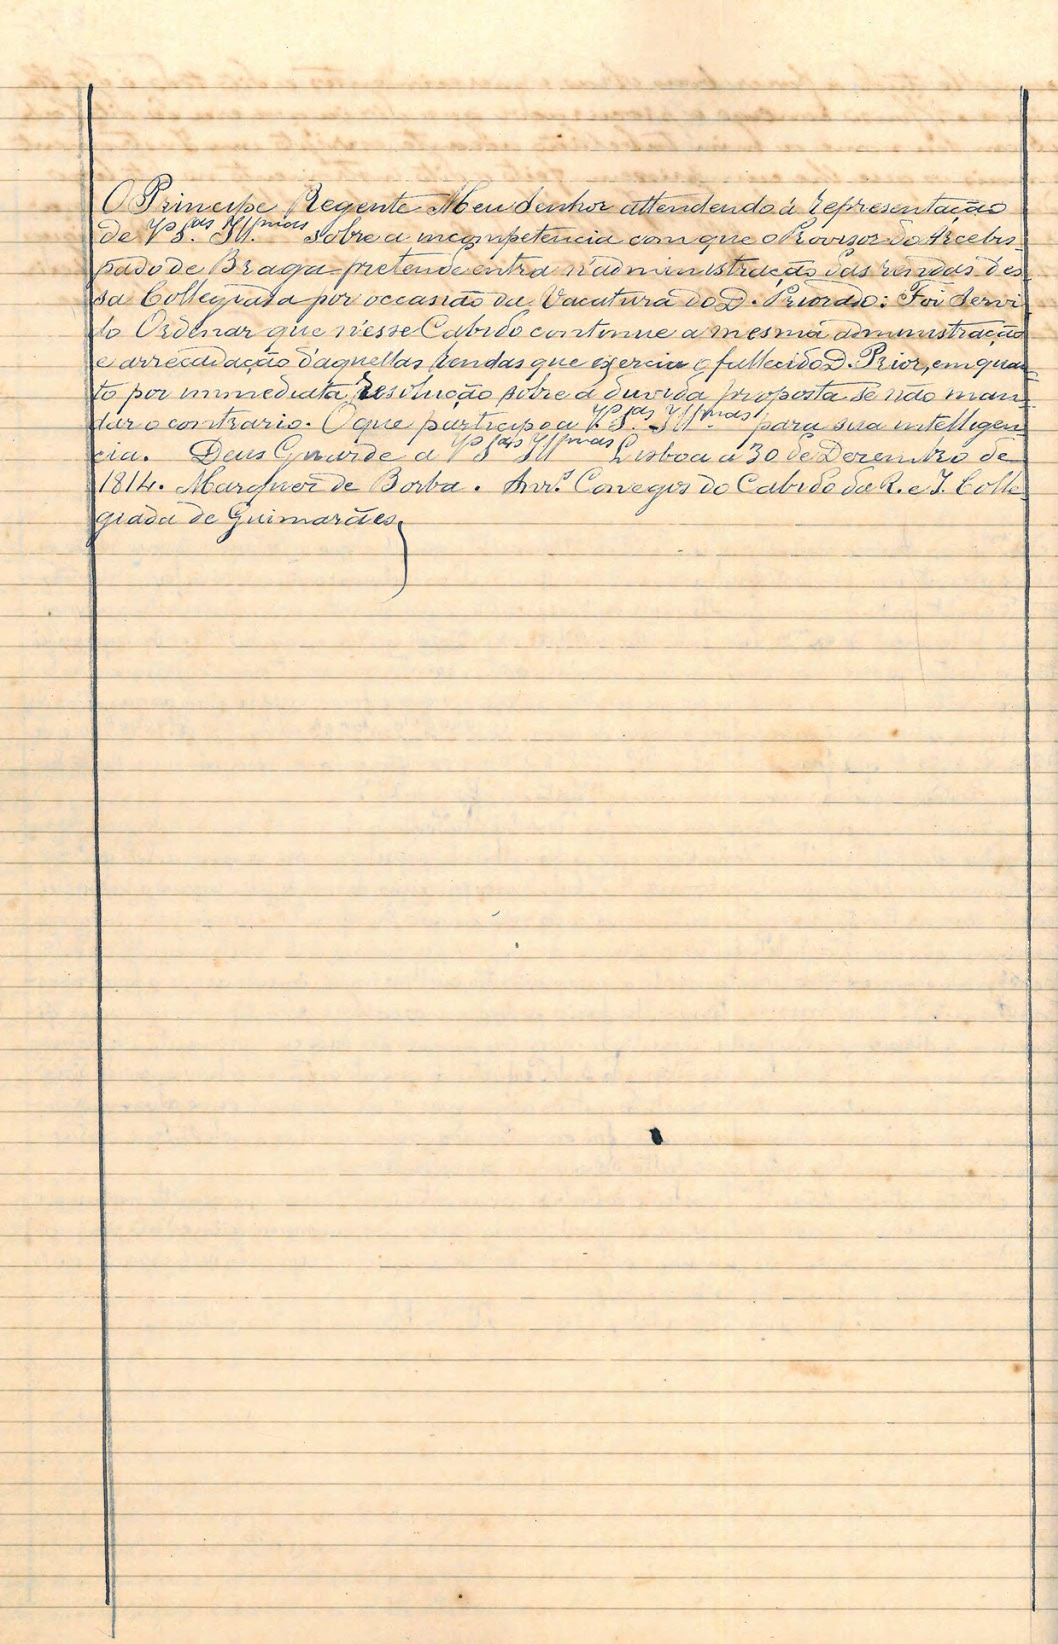 O Principe Regente Meu Senhor attendendo á representação
de V.as S.as Ill.mas sobre a incompetencia com que o Provisor do Arcebis-
pado de Braga pretende entrar n'administração das rendas des-
sa Collegiada por occasião da Vacatura do D. Priorado: Foi Servi-
do Ordenar que n'esse Cabido continue a mesma administração
e arrecadação d'aquellas rendas que exercia o fallecido D. Prior, em quan-
to por immediata resolução sobre a duvida proposta se não man-
dar o contrario. O que participo a V.as S.as Ill.mas para sua intelligen-
cia. Deus Guarde a V.as S.as Ill.mas Lisboa a 30 de Dezembro de
1814. Marquez de Borba. Snr.s Conegos do Cabido da R. e I. Colle-
giada de Guimarães.